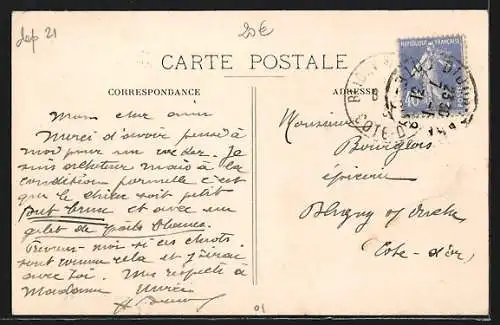 dep 21
20€
CARTE POSTALE
CORRESPONDANCE
ADRESSE
REPUBLIQUE FRANÇAISE
40
POSTES
Mon cher ami
Merci d'avoir pensé à
moi pour un cocker. Je
suis acheteur mais à la
condition formelle c'est
que le chien soit petit
tout brun et avec un
gilet de poils blancs.
Prevenez-moi si ces chiots
sont comme cela et j'irai
avec toi. Mes respects à
Madame Merci
Monsieur
Bourgeois
épicerie
Bligny s/ Ouche
Cote-d'or
01